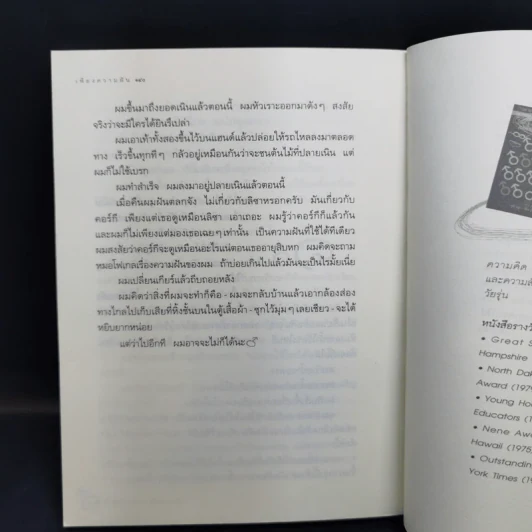 เพียงความฝัน ๑๔๖
ผมขึ้นมาถึงยอดเนินแล้วตอนนี้ ผมหัวเราะออกมาดังๆ สงสัย
จริงว่าจะมีใครได้ยินรึเปล่า
ผมเอาเท้าทั้งสองขึ้นไว้บนแฮนด์แล้วปล่อยให้รถไหลลงมาตลอด
ทาง เร็วขึ้นทุกทีๆ กลัวอยู่เหมือนกันว่าจะชนต้นไม้ที่ปลายเนิน แต่
ผมก็ไม่ใช้เบรก
ผมทำสำเร็จ ผมลงมาอยู่ปลายเนินแล้วตอนนี้
เมื่อคืนผมฝันตลกจัง ไม่เกี่ยวกับลิซาหรอกครับ มันเกี่ยวกับ
คอร์กี เพียงแต่เธอดูเหมือนลิซา เอาเถอะ ผมรู้ว่าคอร์กีก็แล้วกัน
และผมก็ไม่เพียงแต่มองเธอเฉยๆ เท่านั้น เป็นความฝันที่ใช้ได้ทีเดียว
ผมสงสัยว่าคอร์กีจะดูเหมือนอะไรแน่ตอนเธออายุสิบหก ผมคิดจะถาม
หมอโฟเกลเรื่องความฝันของผม ถ้าบ่อยเกินไปแล้วมันจะเป็นไรมั้ยเนี่ย
ผมเปลี่ยนเกียร์แล้วถีบถอยหลัง
ผมคิดว่าสิ่งที่ผมจะทำก็คือ - ผมจะกลับบ้านแล้วเอากล้องส่อง
ทางไกลไปเก็บเสียที่หิ้งชั้นบนในตู้เสื้อผ้า - ซุกไว้มุมๆ เลยเชียว - จะได้
หยิบยากหน่อย
แต่ว่าไปอีกที ผมอาจจะไม่ก็ได้นะ
ความคิด
และความสั
วัยรุ่น
หนังสือรางวั
• Great S
Hampshire
• North Dak
Award (197
• Young Ho
Educators (1
• Nene Awa
Hawaii (1975
• Outstanding
York Times (19